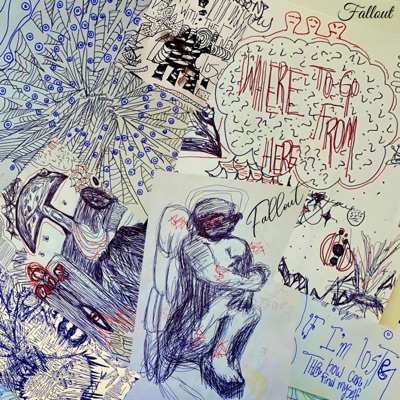 Fallout
WHERE TO GO
FROM
HERE
Fallout
IF I'm lost
how can I
find myself